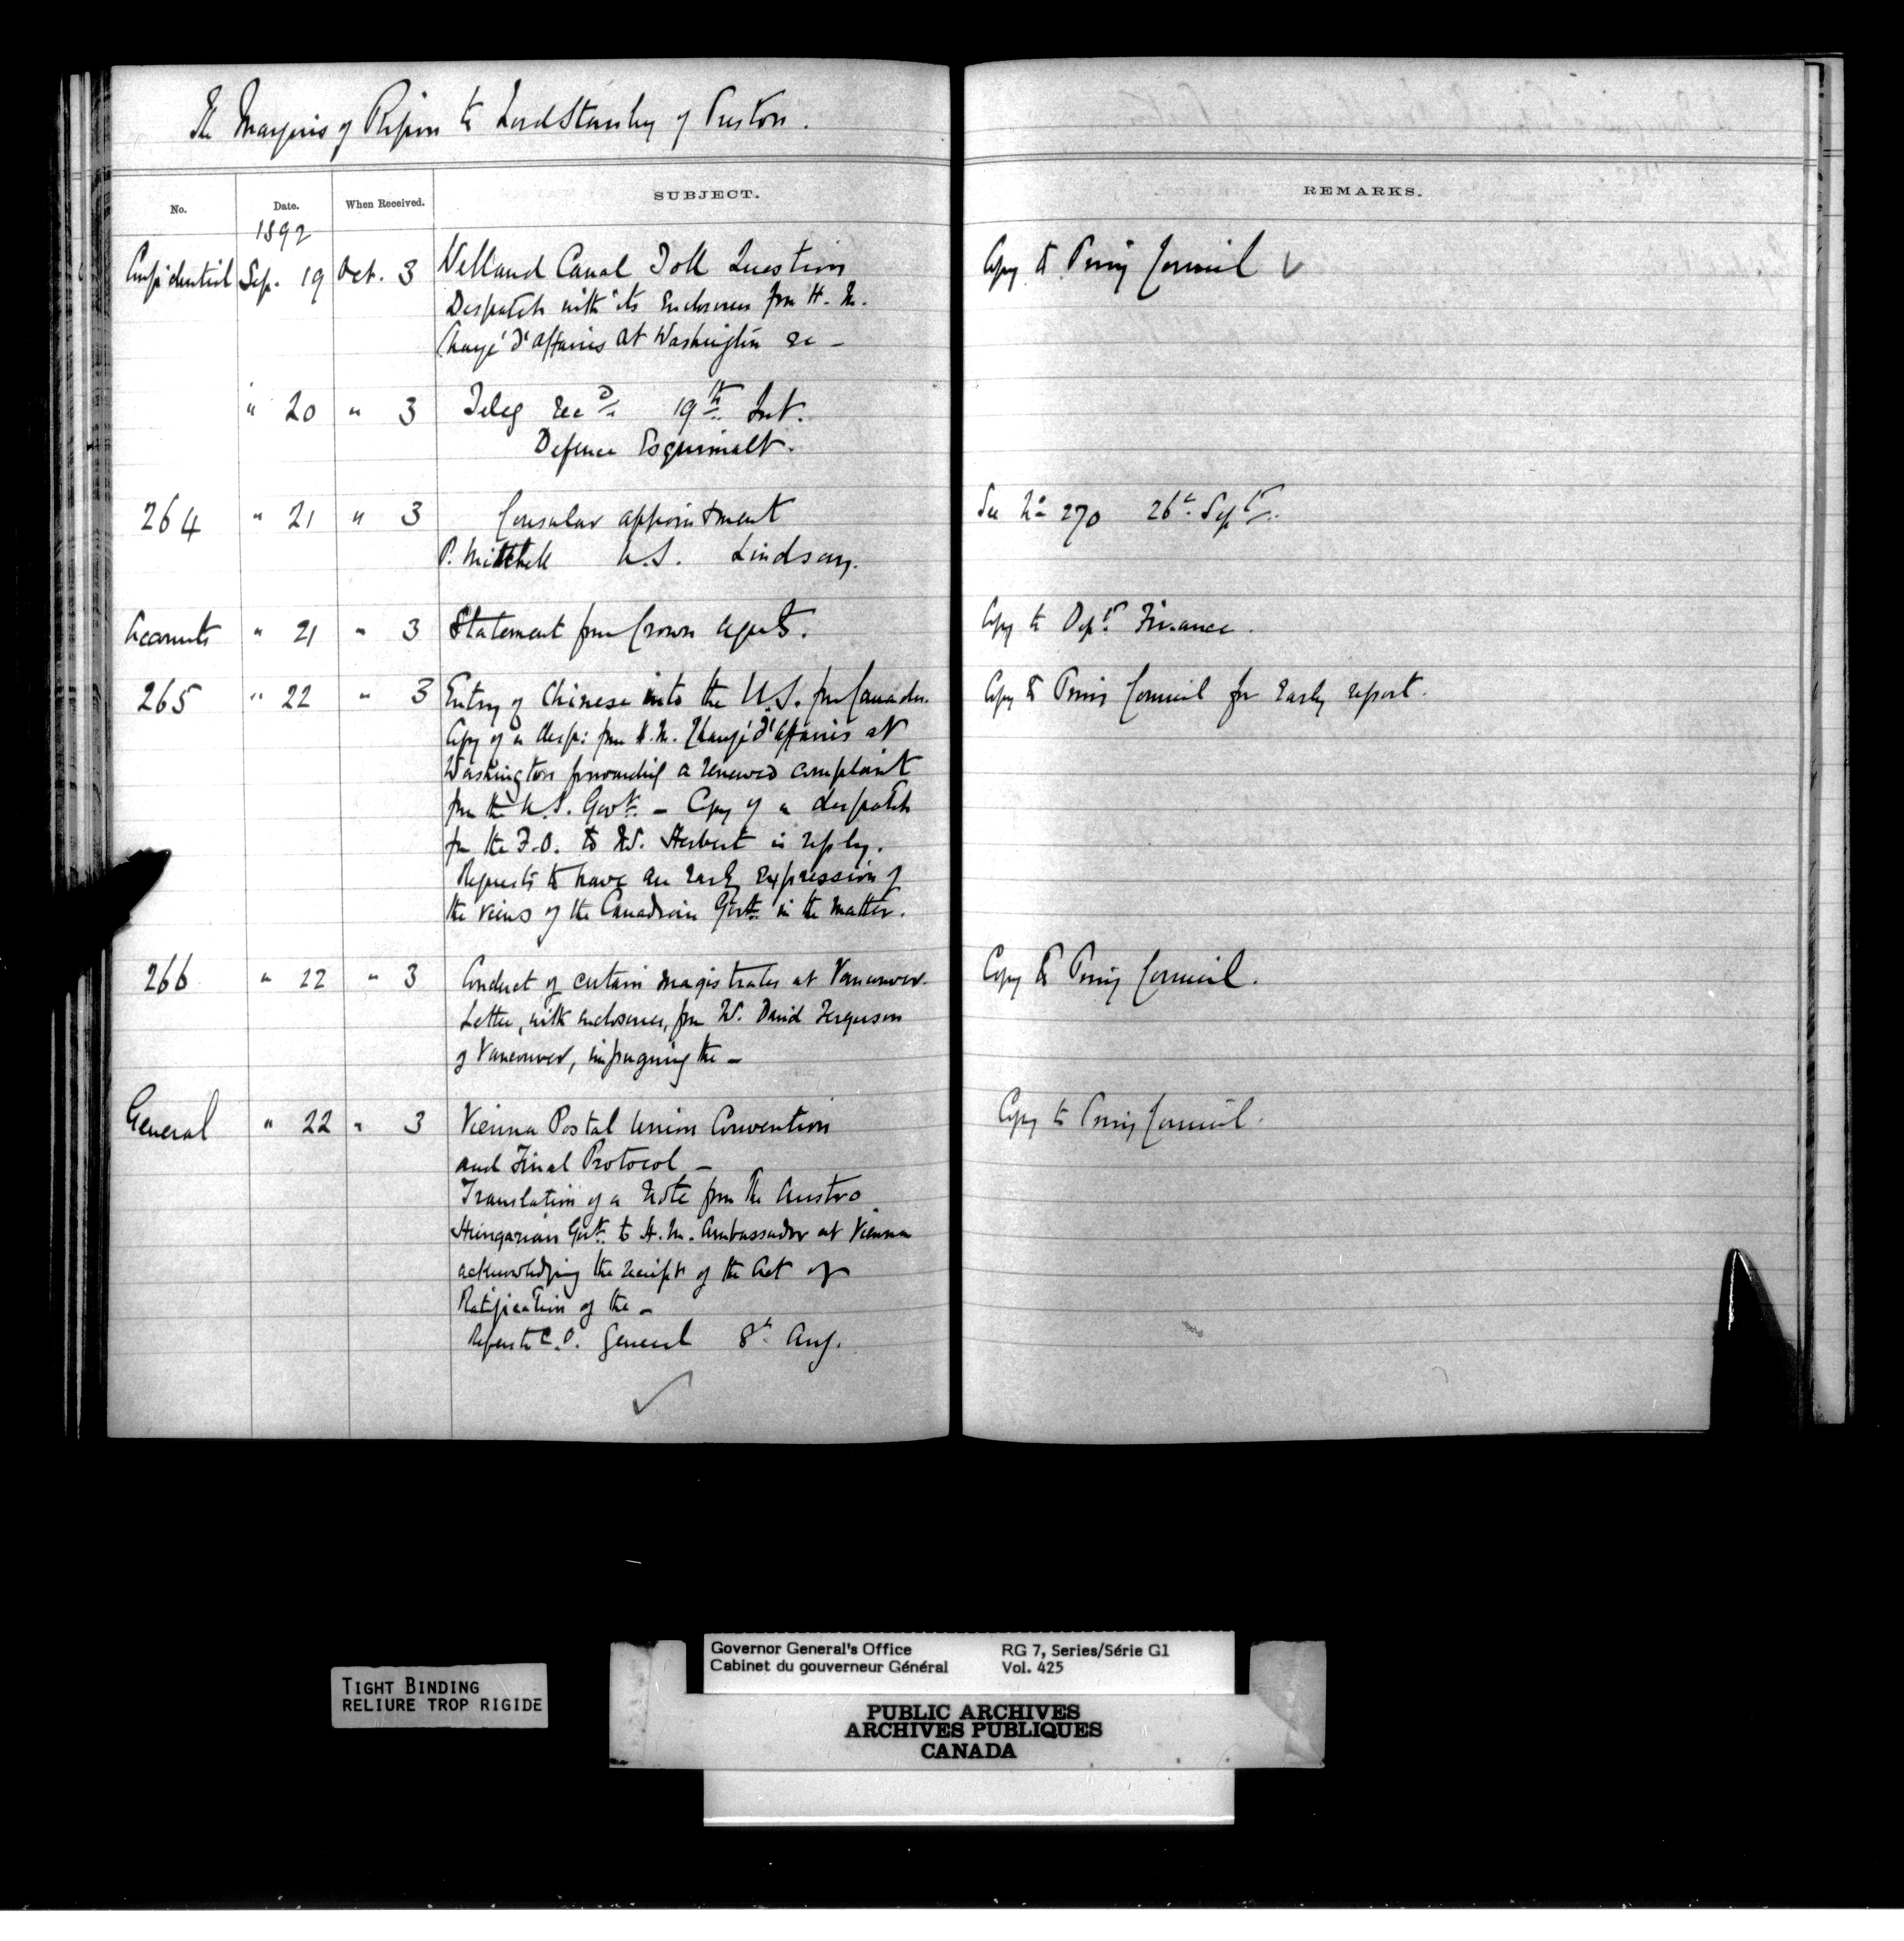 The Marquis of Ripon to Lord Stanley of Preston.
No. Date. When Received. SUBJECT. REMARKS.
1892
Confidential Sep. 19 Oct. 3 Welland Canal Toll Question Copy to Privy Council ✓
Despatch with its Enclosures from H. M.
Chargé d'affaires at Washington re –
" 20 " 3 Teleg recd 19th Inst.
Defence Esquimalt.
264 " 21 " 3 Consular appointment See No 270 26th Sept.
P. Mitchell U.S. Lindsay.
Accounts " 21 " 3 Statement from Crown Agents. Copy to Dept Finance.
265 " 22 " 3 Entry of Chinese into the U.S. from Canada. Copy to Privy Council for Early report.
Copy of a desp: from H.M. Chargé d'affaires at
Washington forwarding a renewed complaint
from the U.S. Govt. – Copy of a despatch
from the F.O. to Mr. Herbert in reply.
Requests to have an Early Expression of
the views of the Canadian Govt. in the matter.
266 " 22 " 3 Conduct of certain magistrates at Vancouver. Copy to Privy Council.
Letter, with enclosures, from W. David Ferguson
of Vancouver, impugning the –
General " 22 " 3 Vienna Postal Union Convention Copy to Privy Council.
and Final Protocol –
Translation of a Note from the Austro
Hungarian Govt. to H.M. Ambassador at Vienna
acknowledging the receipt of the Act of
Ratification of the –
Refers to C.O. General 8th Aug.
✓
TIGHT BINDING
RELIURE TROP RIGIDE
Governor General's Office RG 7, Series/Série G1
Cabinet du gouverneur Général Vol. 425
PUBLIC ARCHIVES
ARCHIVES PUBLIQUES
CANADA